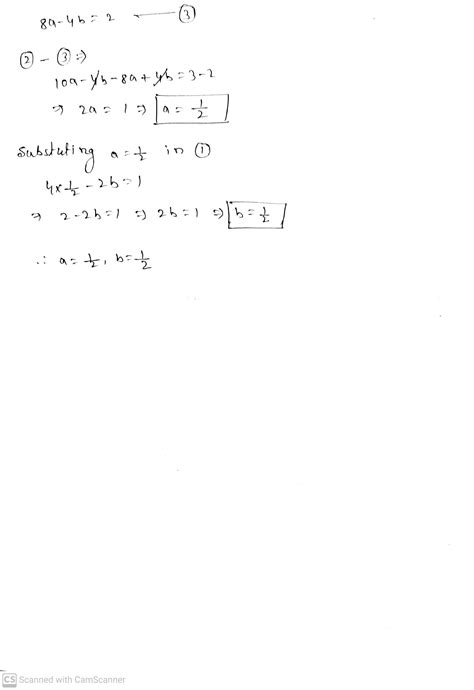 8a-4b=2 — ③
② - ③ :⇒
10a-4b-8a+4b=3-2
⇒ 2a=1 ⇒ a=1/2
Substuting a=1/2 in ①
4×1/2-2b=1
⇒ 2-2b=1 ⇒ 2b=1 ⇒ b=1/2
∴ a=1/2, b=1/2
CS Scanned with CamScanner